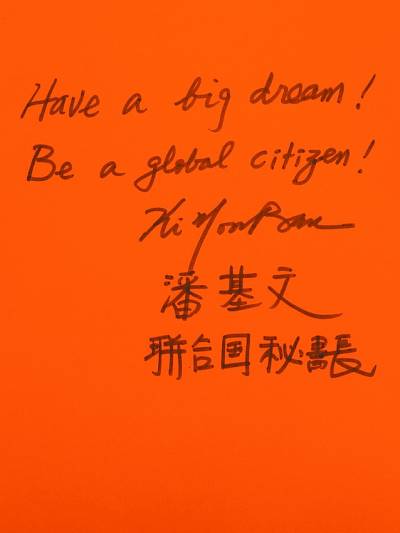 Have a big dream!
Be a global citizen!
Ki Moon Ban
潘基文
聯合国秘書長